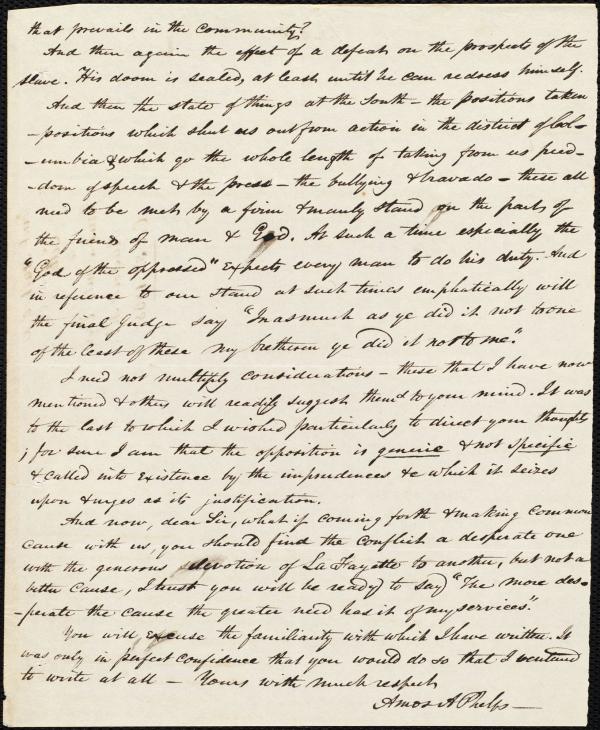 that prevails in the community?
And then again the effect of a defeat on the prospects of the
slave. His doom is sealed, at least until he can redress himself.
And then the state of things at the South - the positions taken
- positions which shut us out from action in the district of Col-
-umbia & which go the whole length of taking from us free-
-dom of speech & the press - the bullying & bravado - these all
need to be met by a firm & manly stand on the part of
the friends of man & God. At such a time especially the
"God of the oppressed" expects every man to do his duty. And
in reference to our stand at such times emphatically will
the final Judge say "Inasmuch as ye did it not to one
of the least of these my bretheren ye did it not to me."
I need not multiply considerations - these that I have now
mentioned & others will readily suggest themd to your mind. It was
to the last to which I wished particularly to direct your thoughts
; for sure I am that the opposition is generic & not specific
& called into existence by the imprudences &c which it seizes
upon & urges as its justification.
And now, dear Sir, what if coming forth & making common
cause with us, you should find the conflict a desperate one
with the generous devotion of La Fayette to another, but not a
better cause, I trust you will be ready to say "The more des-
-perate the cause the greater need has it of my services".
You will excuse the familiarity with which I have written. It
was only in perfect confidence that you would do so that I ventured
to write at all - Yours with much respect
Amos A Phelps -